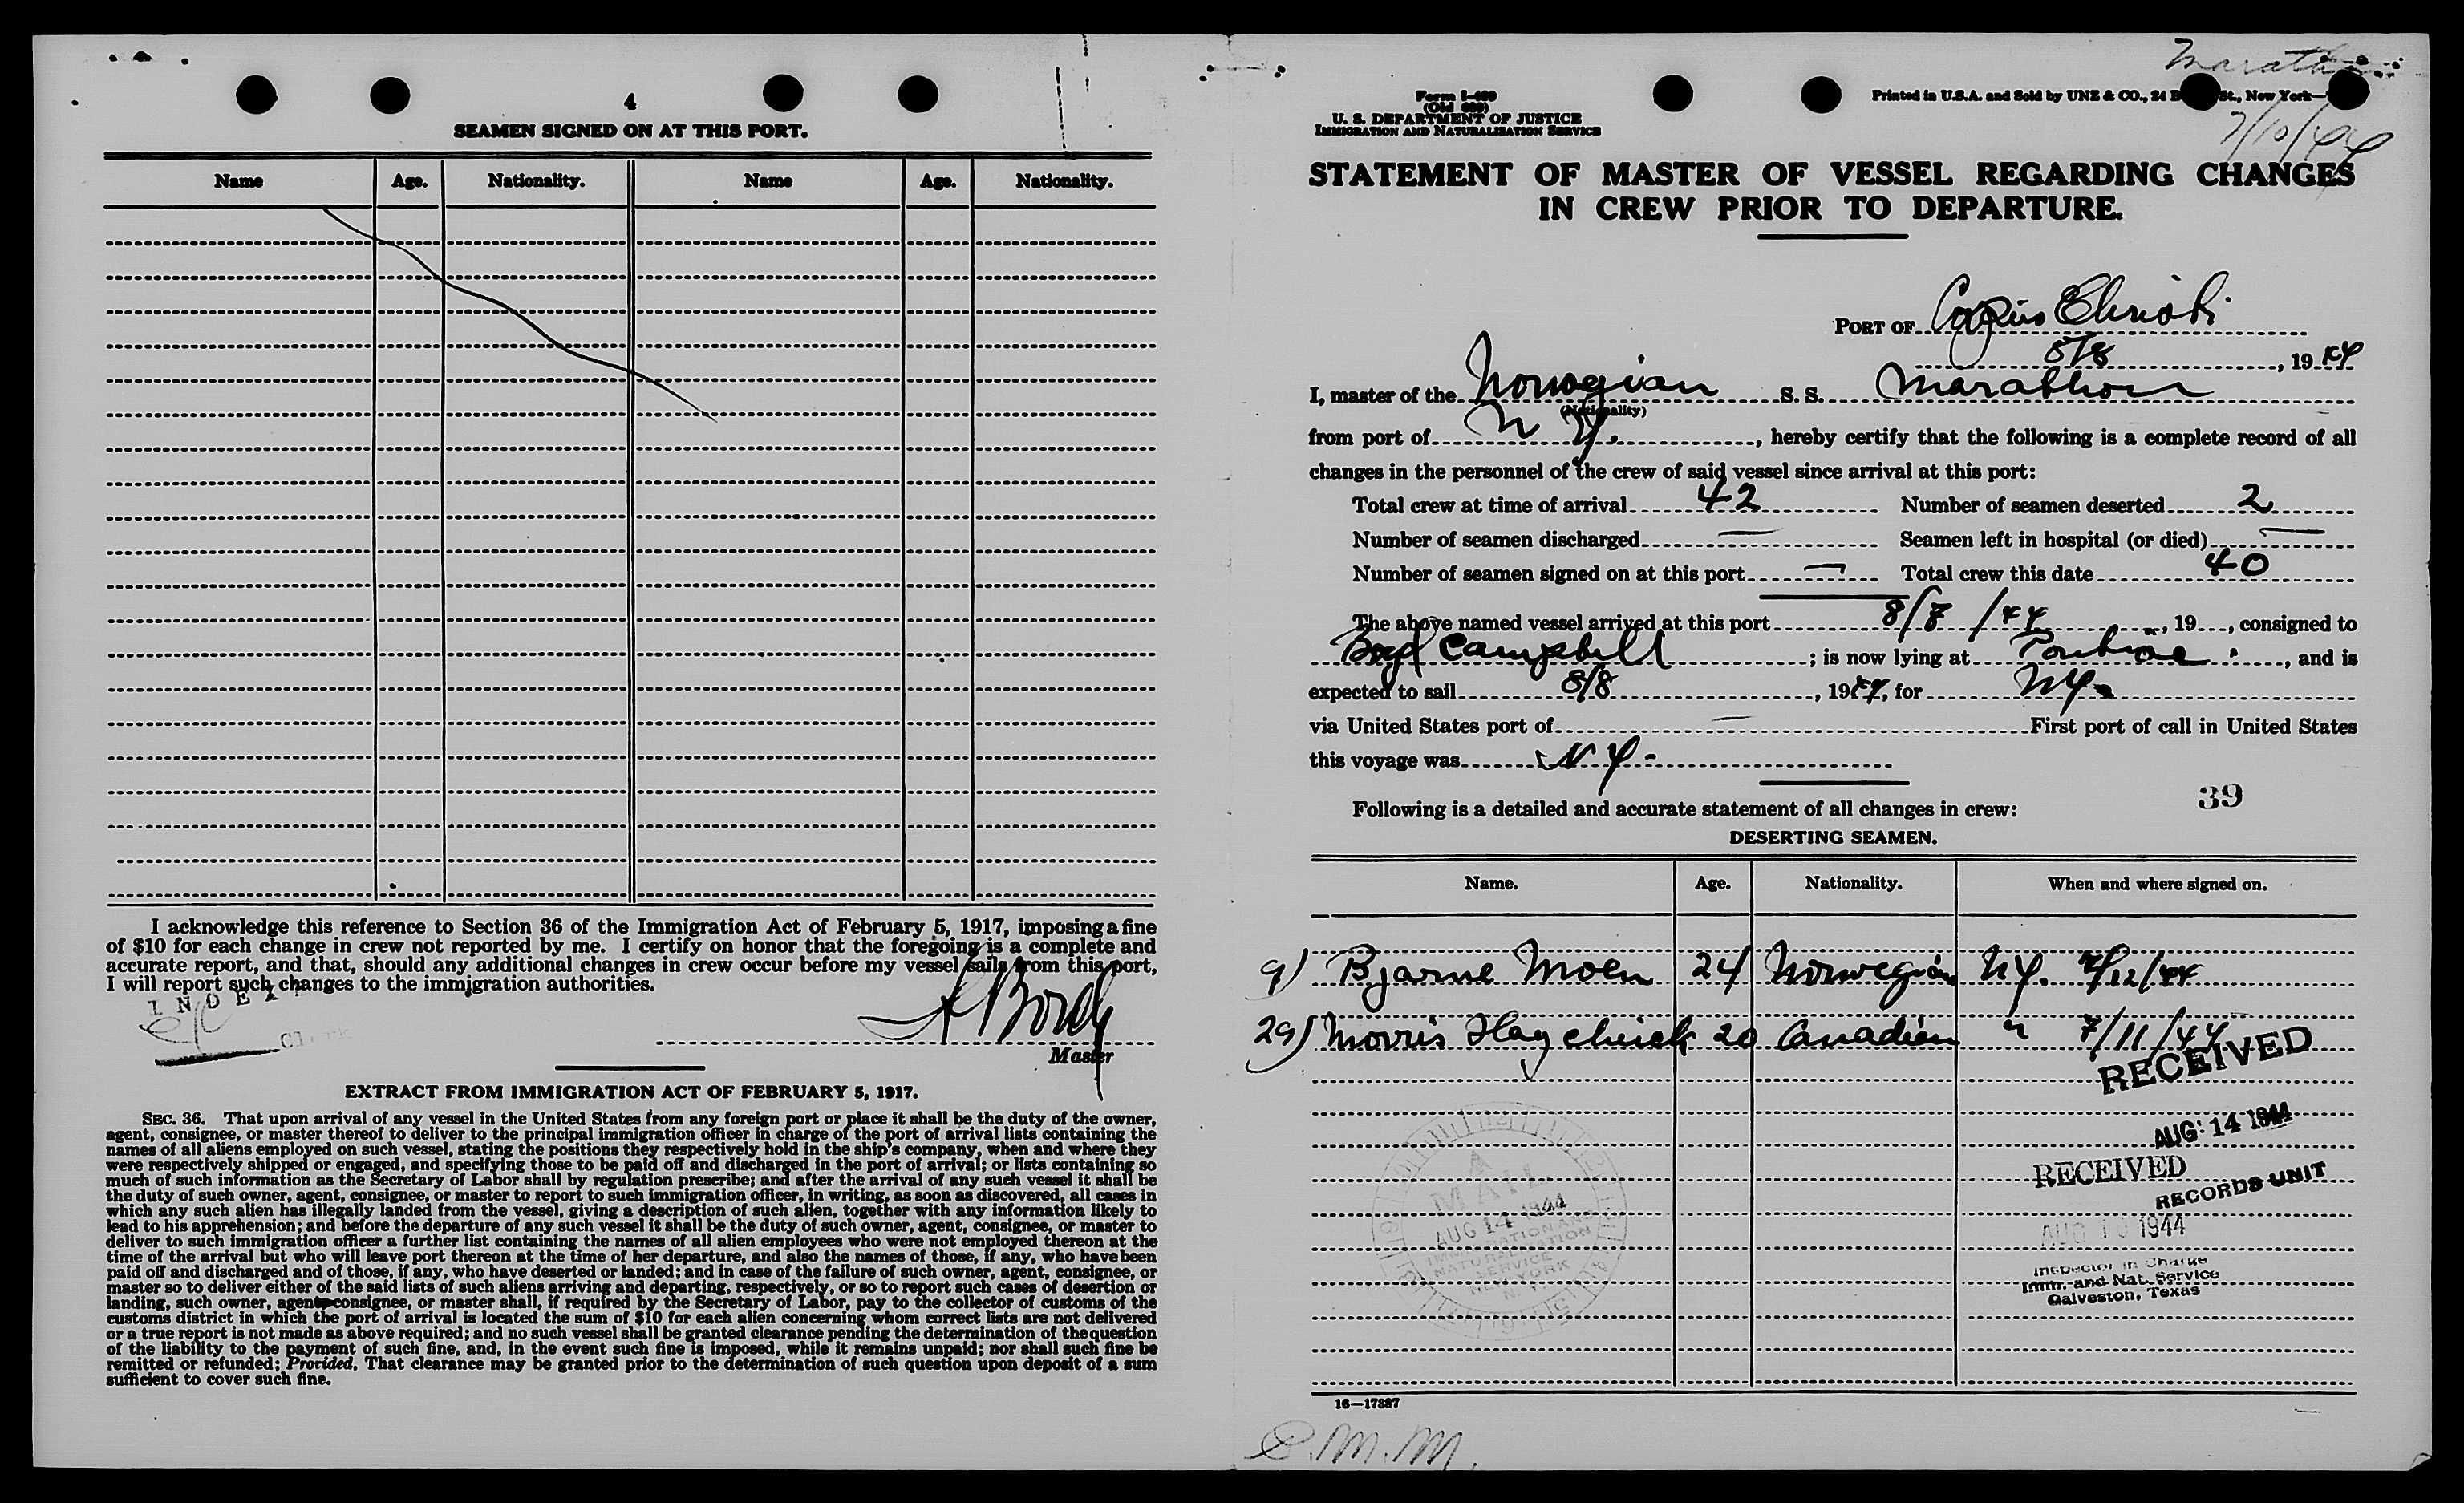 4
SEAMEN SIGNED ON AT THIS PORT.
Name Age. Nationality. Name Age. Nationality.
I acknowledge this reference to Section 36 of the Immigration Act of February 5, 1917, imposing a fine
of $10 for each change in crew not reported by me. I certify on honor that the foregoing is a complete and
accurate report, and that, should any additional changes in crew occur before my vessel sails from this port,
I will report such changes to the immigration authorities.
INDEX
Clerk
Master
EXTRACT FROM IMMIGRATION ACT OF FEBRUARY 5, 1917.
SEC. 36. That upon arrival of any vessel in the United States from any foreign port or place it shall be the duty of the owner,
agent, consignee, or master thereof to deliver to the principal immigration officer in charge of the port of arrival lists containing the
names of all aliens employed on such vessel, stating the positions they respectively hold in the ship's company, when and where they
were respectively shipped or engaged, and specifying those to be paid off and discharged in the port of arrival; or lists containing so
much of such information as the Secretary of Labor shall by regulation prescribe; and after the arrival of any such vessel it shall be
the duty of such owner, agent, consignee, or master to report to such immigration officer, in writing, as soon as discovered, all cases in
which any such alien has illegally landed from the vessel, giving a description of such alien, together with any information likely to
lead to his apprehension; and before the departure of any such vessel it shall be the duty of such owner, agent, consignee, or master to
deliver to such immigration officer a further list containing the names of all alien employees who were not employed thereon at the
time of the arrival but who will leave port thereon at the time of her departure, and also the names of those, if any, who have been
paid off and discharged and of those, if any, who have deserted or landed; and in case of the failure of such owner, agent, consignee, or
master so to deliver either of the said lists of such aliens arriving and departing, respectively, or so to report such cases of desertion or
landing, such owner, agent, consignee, or master shall, if required by the Secretary of Labor, pay to the collector of customs of the
customs district in which the port of arrival is located the sum of $10 for each alien concerning whom correct lists are not delivered
or a true report is not made as above required; and no such vessel shall be granted clearance pending the determination of the question
of the liability to the payment of such fine, and, in the event such fine is imposed, while it remains unpaid; nor shall such fine be
remitted or refunded; Provided, That clearance may be granted prior to the determination of such question upon deposit of a sum
sufficient to cover such fine.
7/10/44
Form I-489
(Old 689)
U. S. DEPARTMENT OF JUSTICE
IMMIGRATION AND NATURALIZATION SERVICE
Printed in U.S.A. and Sold by UNZ & CO., 24 St., New York
STATEMENT OF MASTER OF VESSEL REGARDING CHANGES
IN CREW PRIOR TO DEPARTURE.
PORT OF Corpus Christi
8/8, 1944
I, master of the Norwegian S. S. Marathon
(Nationality)
from port of N Y., hereby certify that the following is a complete record of all
changes in the personnel of the crew of said vessel since arrival at this port:
Total crew at time of arrival 42 Number of seamen deserted 2
Number of seamen discharged — Seamen left in hospital (or died) —
Number of seamen signed on at this port — Total crew this date 40
The above named vessel arrived at this port 8/7/44, 19 , consigned to
Boyd Campbell; is now lying at , and is
expected to sail 8/8, 1944, for NY.
via United States port of — First port of call in United States
this voyage was N Y -
39
Following is a detailed and accurate statement of all changes in crew:
DESERTING SEAMEN.
Name. Age. Nationality. When and where signed on.
9) Bjarne Moen 24 Norwegian NY. 7/12/44
29) Morris Hay 20 Canadian " 7/11/44
RECEIVED
AUG 14 1944
RECORDS UNIT
RECEIVED
AUG 1 1944
Inspector in Charge
Imm. and Nat. Service
Galveston, Texas
MAIL
AUG 14 1944
IMMIGRATION AND
NATURALIZATION
SERVICE
NEW YORK
N. YORK
16—17387
C.M.M.